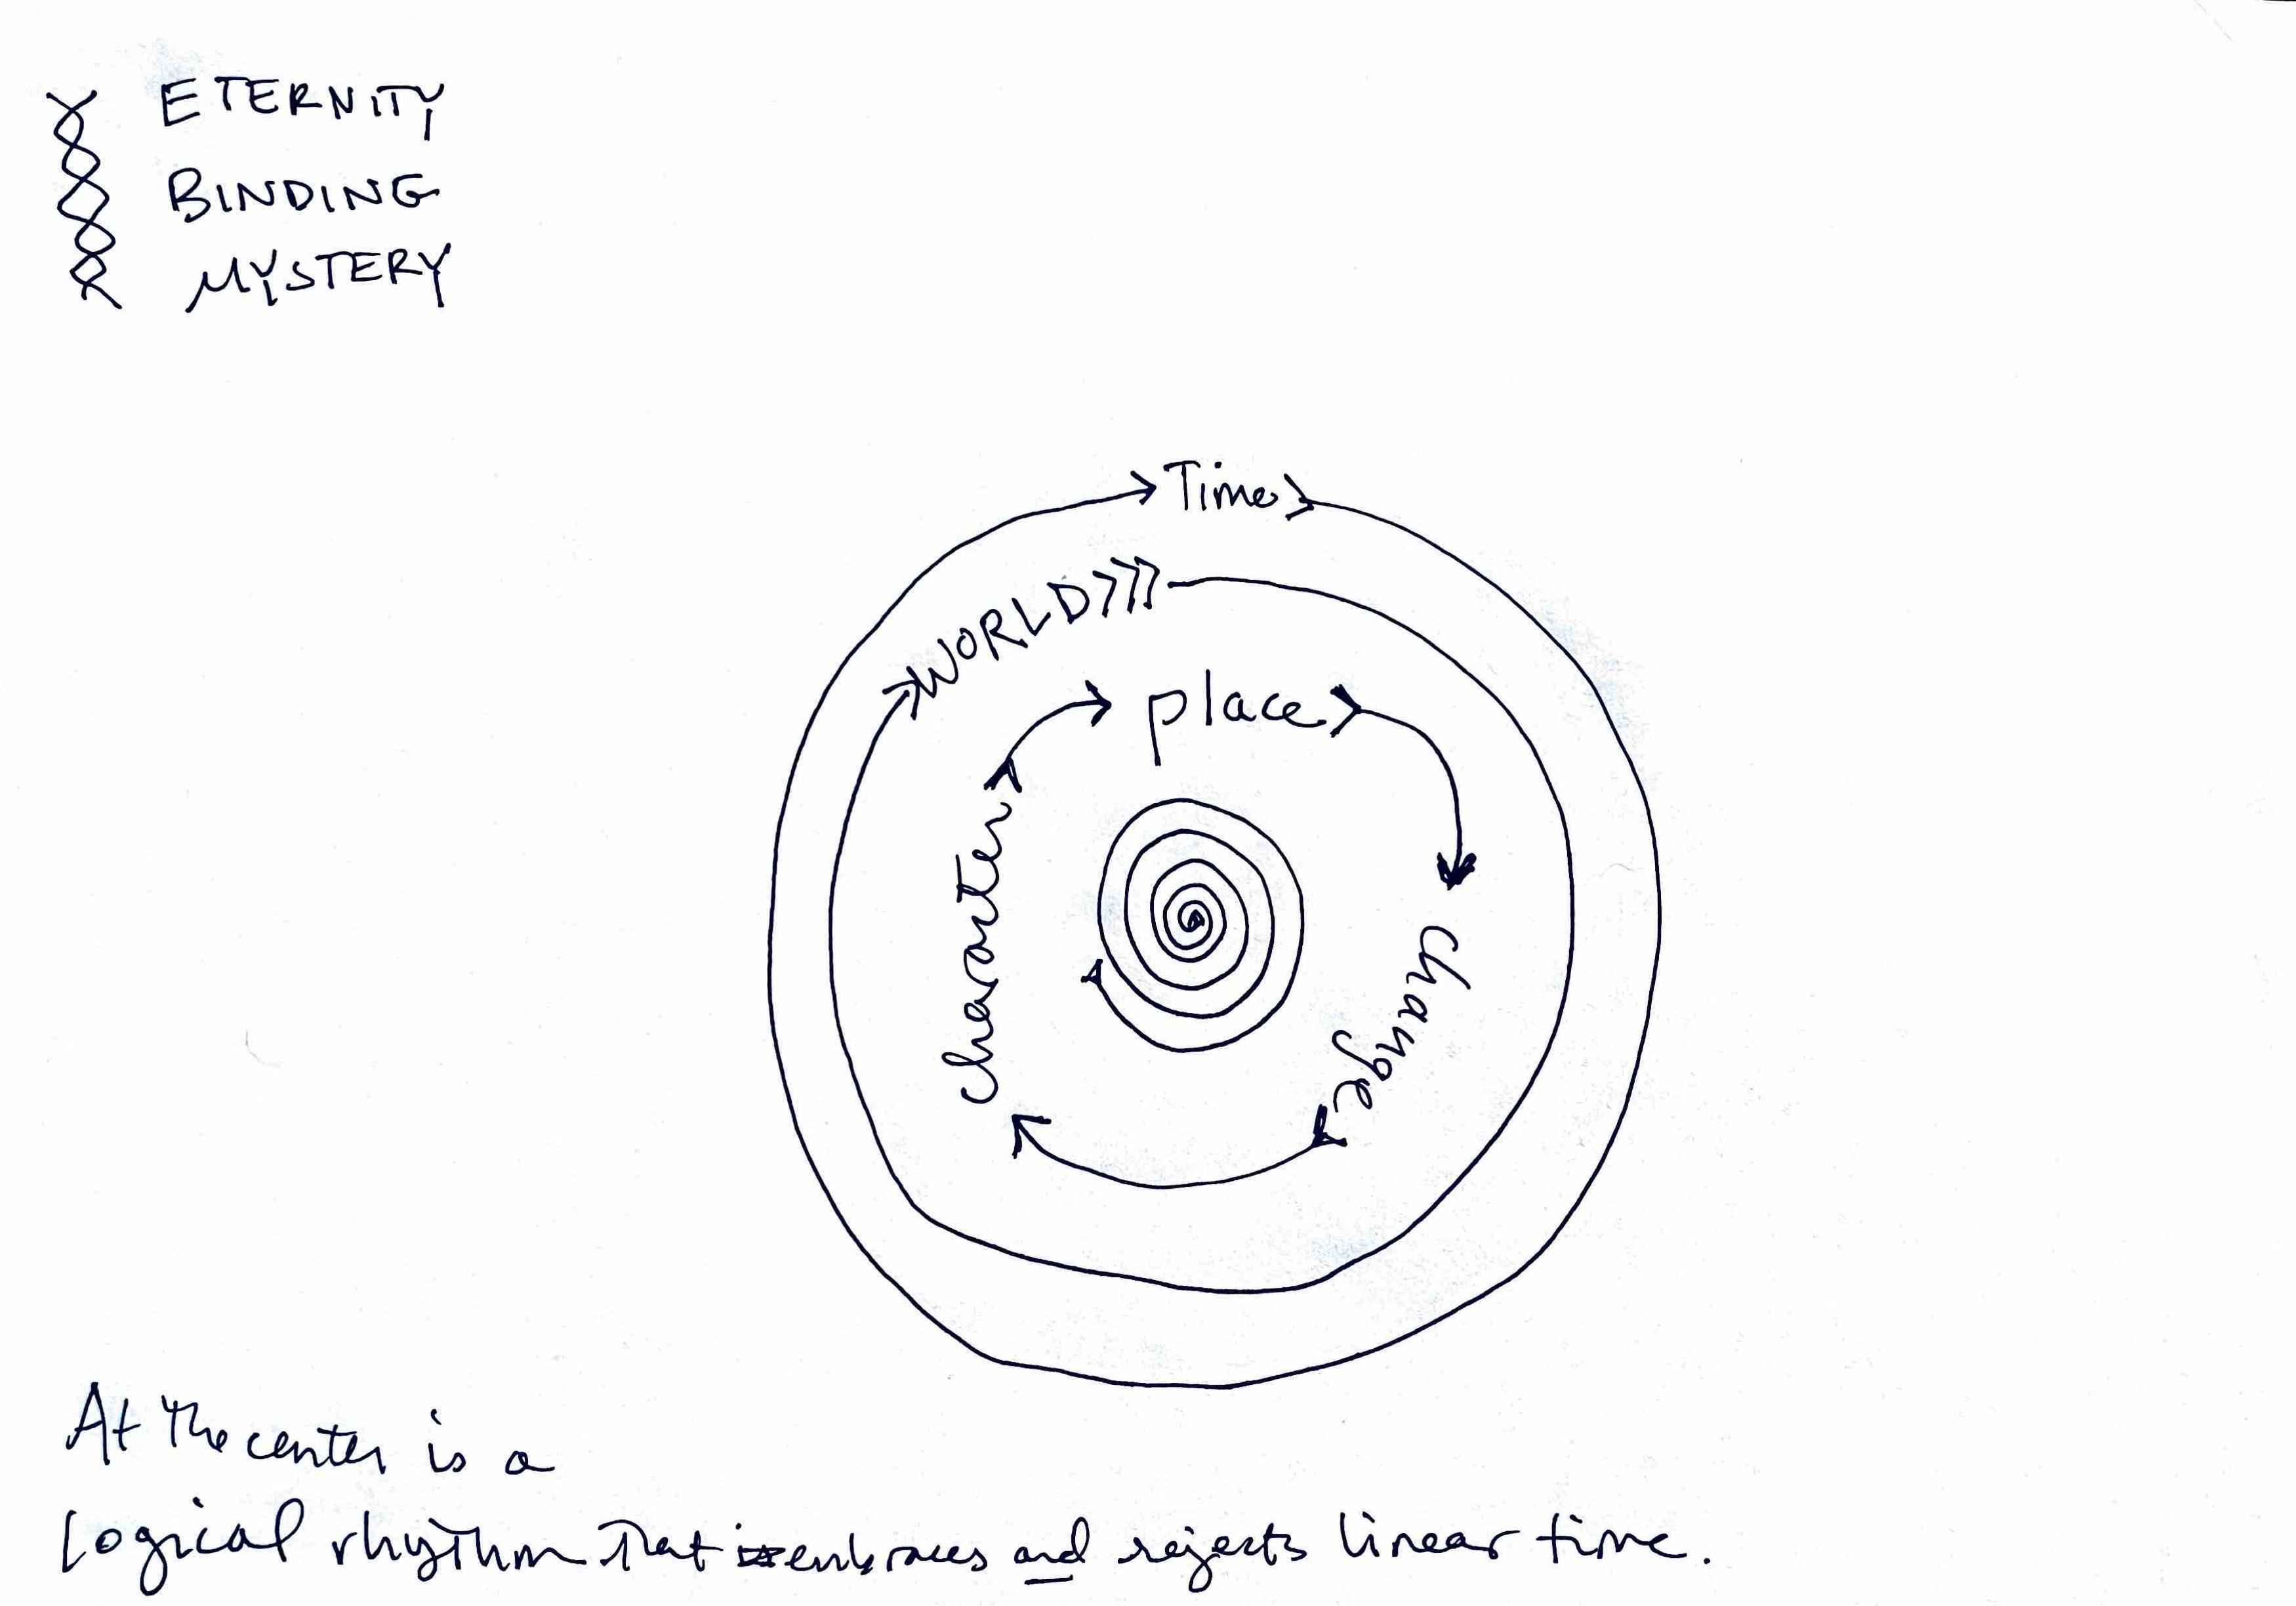 ETERNITY
BINDING
MYSTERY
Time
WORLD
place
character
change
At the center is a
logical rhythm that embraces and rejects linear time.